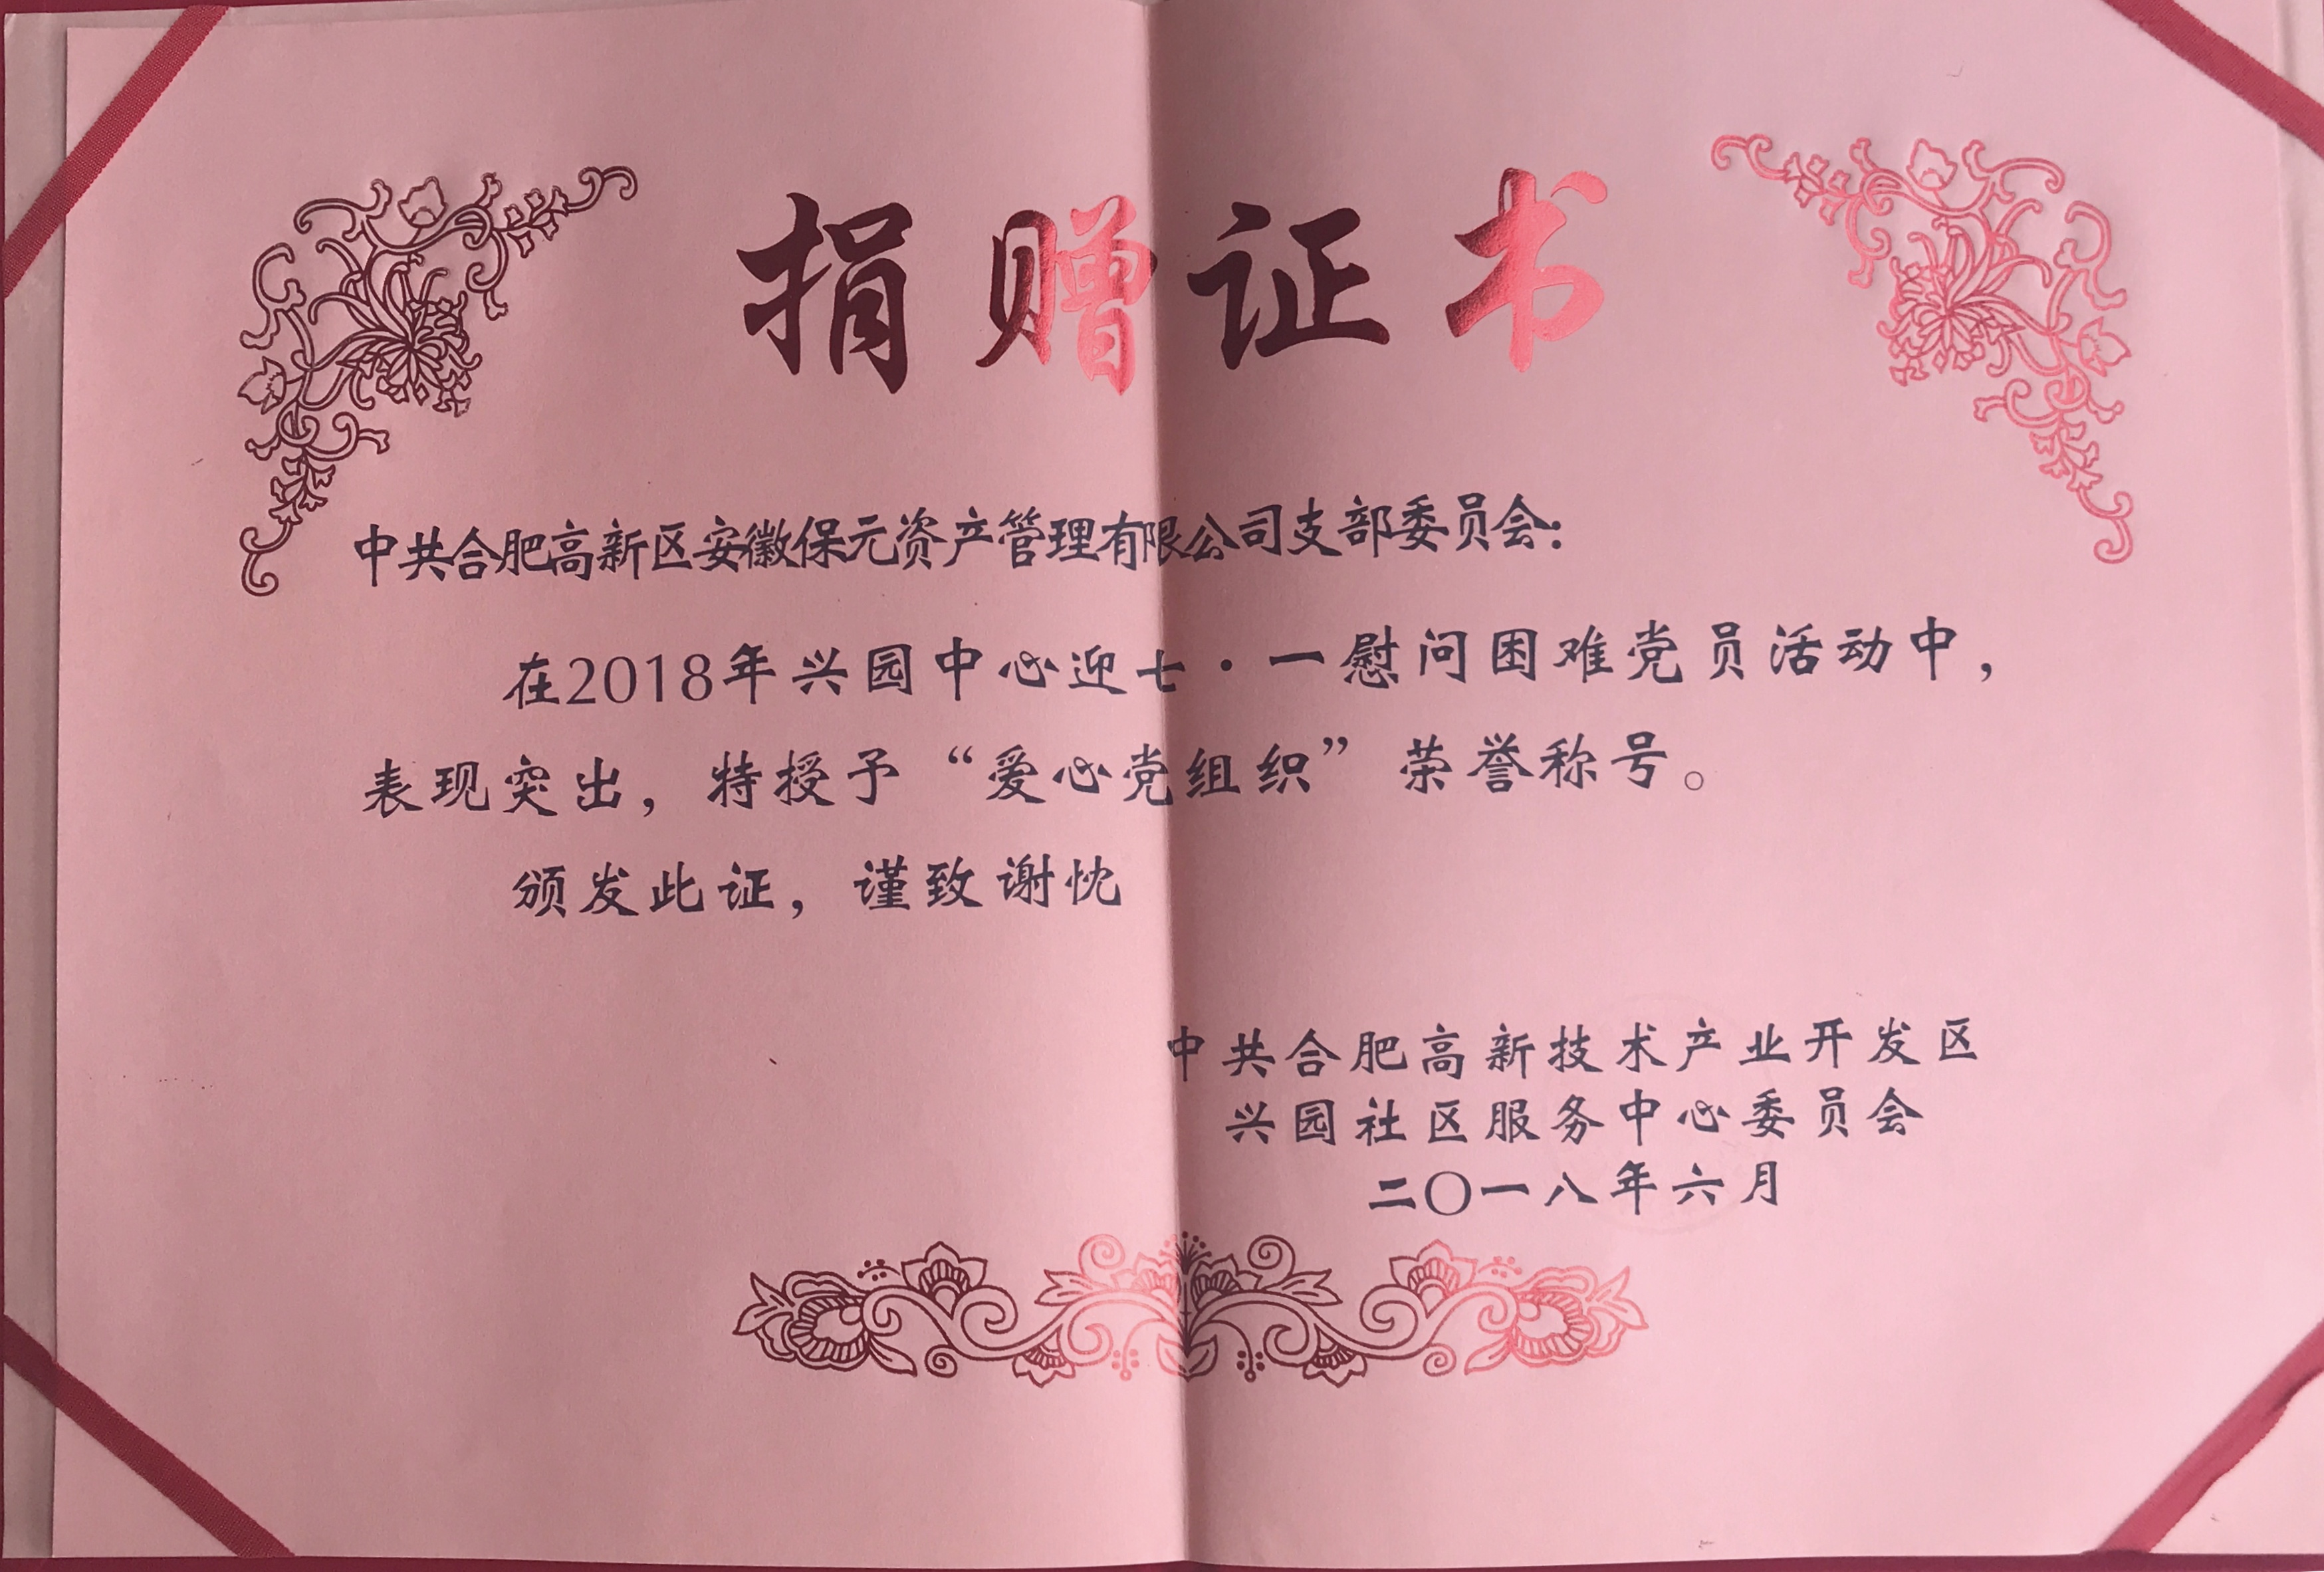 捐赠证书
中共合肥高新区安徽保元资产管理有限公司支部委员会：
在2018年兴园中心迎七·一慰问困难党员活动中，
表现突出，特授予“爱心党组织”荣誉称号。
颁发此证，谨致谢忱
中共合肥高新技术产业开发区
兴园社区服务中心委员会
二〇一八年六月